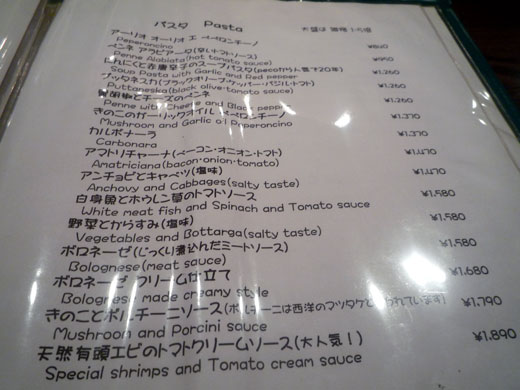 パスタ Pasta 大盛は 価格 1.5倍
アーリオ オーリオ エ ペペロンチーノ ¥840
Peperoncino
ペンネ アラビアータ(辛いトマトソース) ¥950
Penne Alabiata(hot tomato sauce)
にんにくと赤唐辛子のスープパスタ(pecoが十八番で20年) ¥1,260
Soup Pasta with Garlic and Red pepper
プッタネスカ(ブラックオリーブ・ケッパー・バジル・トマト) ¥1,260
Puttaneska(black olive・tomato sauce)
黒胡椒とチーズのペンネ ¥1,260
Penne with Cheese and Black pepper
きのこのガーリックオイル ペペロンチーノ ¥1,370
Mushroom and Garlic oil Peperoncino
カルボナーラ ¥1,370
Carbonara
アマトリチャーナ(ベーコン・オニオン・トマト) ¥1,470
Amatriciana(bacon・onion・tomato)
アンチョビとキャベツ(塩味) ¥1,470
Anchovy and Cabbages(salty taste)
白身魚とホウレン草のトマトソース ¥1,580
White meat fish and Spinach and Tomato sauce
野菜とからすみ(塩味) ¥1,580
Vegetables and Bottarga(salty taste)
ボロネーゼ(じっくり煮込んだミートソース) ¥1,580
Bolognese(meat sauce)
ボロネーゼ クリーム仕立て ¥1,680
Bolognese made creamy style
きのことポルチーニソース(ポルチーニは西洋のマツタケといわれています) ¥1,790
Mushroom and Porcini sauce
天然有頭エビのトマトクリームソース(大人気!) ¥1,890
Special shrimps and Tomato cream sauce